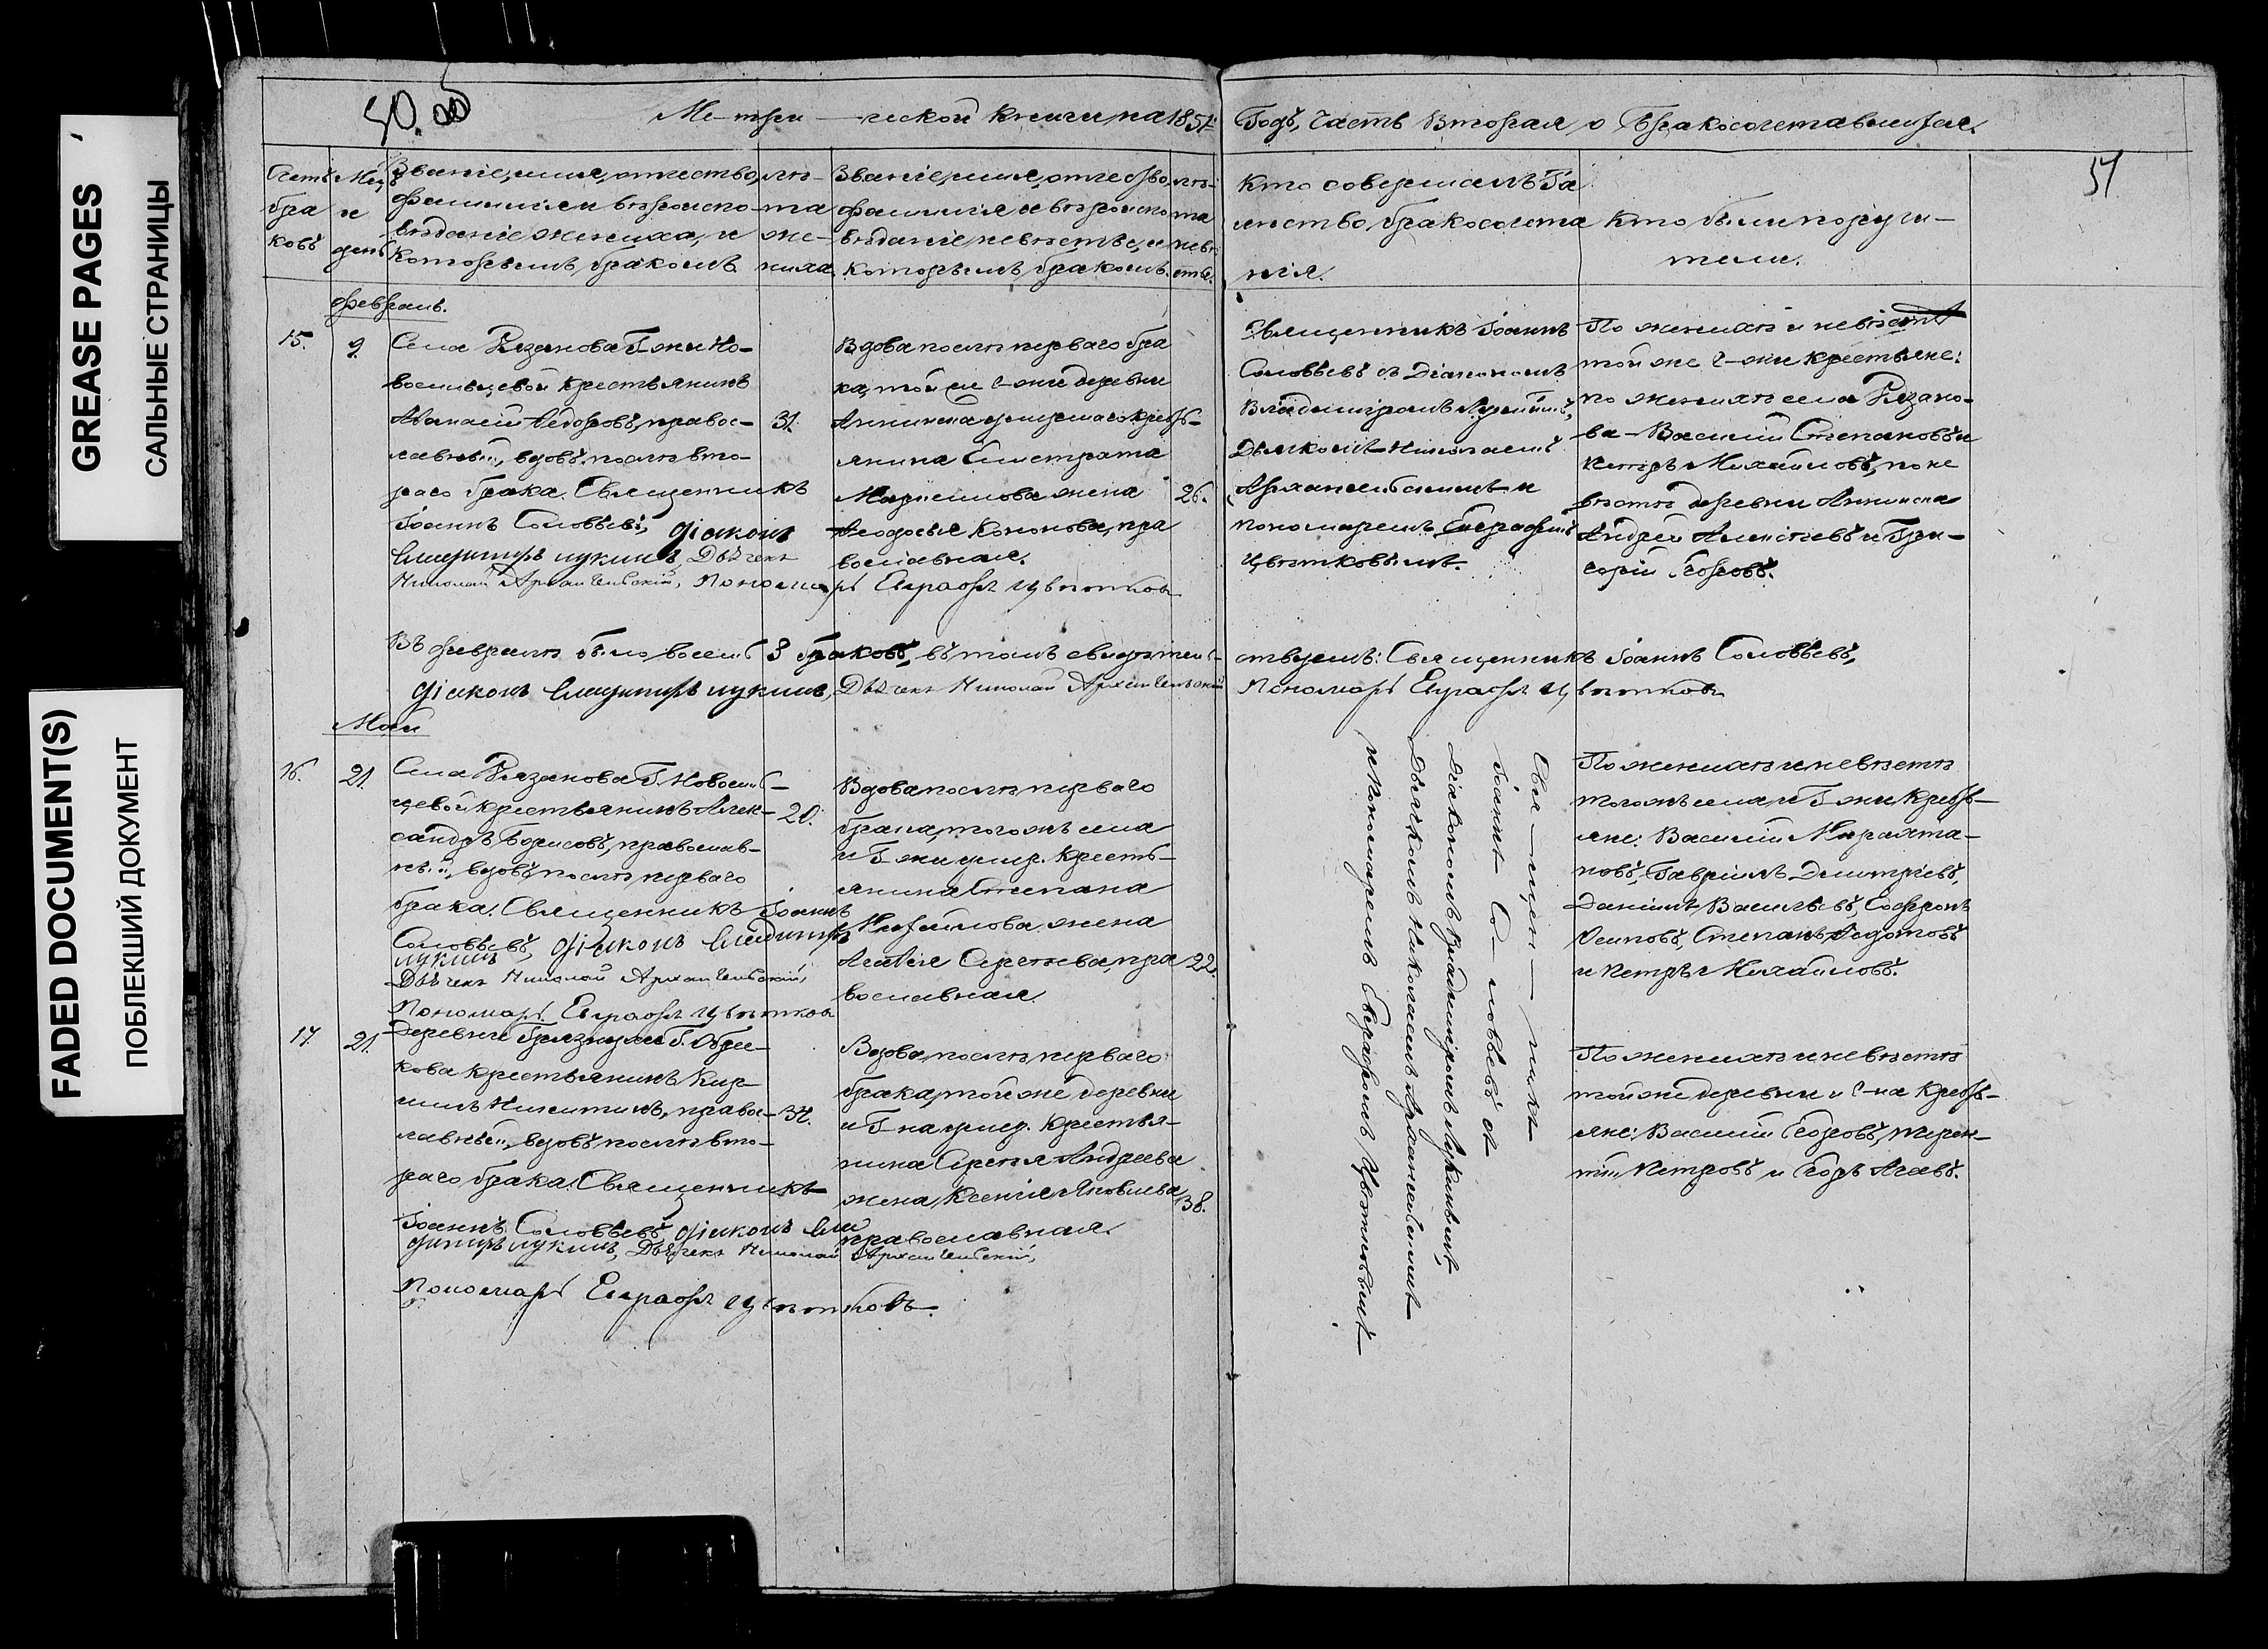 GREASE PAGES
САЛЬНЫЕ СТРАНИЦЫ
FADED DOCUMENT(S)
ПОБЛЕКШИЙ ДОКУМЕНТ
50.
Метри-ческой книги на 1851
Годъ, Часть Вторая о Бракосочетавшихся.
51
Счетъ браковъ
Мѣц и день
Званіе, имя, отчество,
фамилія и вѣроиспо-
вѣданіе жениха, и
которымъ бракомъ.
лѣ-
та
же-
ниха
Званіе, имя, отчество,
фамилія и вѣроиспо
вѣданіе невѣсты, и
которымъ бракомъ.
лѣ-
та
невѣ
сты.
Кто совершалъ Та
инство бракосочета
нія.
Кто были поручи-
тели.
Февраль.
15.
9.
Села Рязанова Г-жи Но-
восильцевой крестьянинъ
Аѳанасій Ѳедоровъ, правос-
лавный, вдовъ послѣ вто-
раго брака. Священникъ
Іоаннъ Соловьевъ, Діаконъ
Владимиръ Лукинъ, Дьячекъ
Николай Архангельскій, Пономарь Евграфъ Цвѣтковъ
31.
Вдова послѣ перваго бра
ка, той же Г-жи деревни
Аннинска умершаго кресть-
янина Елистрата
жена
Ѳеодосья Кононова, пра
вославная.
26.
Священникъ Іоаннъ
Соловьевъ съ Діакономъ
Владимиромъ Лукинымъ,
Дьячкомъ Николаемъ
Архангельскимъ и
пономаремъ Евграфомъ
Цвѣтковымъ.
По женихѣ и невѣстѣ
той же Г-жи крестьяне:
по женихѣ села Рязано-
ва - Василій Степановъ и
Петръ Михайловъ, по не
вѣстѣ деревни Аннинска
Андрей Алексѣевъ и Гри-
горій Егоровъ.
Въ февралѣ было восемь 8 браковъ, въ томъ свидѣтель-
ствуемъ: Священникъ Іоаннъ Соловьевъ,
Діаконъ Владимиръ Лукинъ, Дьячекъ Николай Архангельскій
Пономарь Евграфъ Цвѣтковъ
Май
16.
21.
Села Рязанова Г. Новосиль-
цевой крестьянинъ Алек-
сандръ Борисовъ, православ-
ный, вдовъ послѣ перваго
брака. Священникъ Іоаннъ
Соловьевъ, Діаконъ Владимиръ
Лукинъ
Дьячекъ Николай Архангельскій,
Пономарь Евграфъ Цвѣтковъ
20.
Вдова послѣ перваго
брака, тогожъ села
и Г-жи умер. кресть-
янина Степана
жена
Агаѳія Сергѣева, пра
вославная.
22.
Свя-щен-никъ
Іоаннъ Со-ловьевъ съ
Діакономъ Владимиромъ Лукинымъ,
Дьячкомъ Николаемъ Архангельскимъ
и Пономаремъ Евграфомъ Цвѣтковымъ
По женихѣ и невѣстѣ
тогожъ села, и Г-жи кресть-
яне: Василій
Гавріилъ Димитріевъ,
Даніилъ Васильевъ, Софронъ
Осиповъ, Степанъ Ѳедотовъ
и Петръ Михайловъ.
17.
21.
Деревни Г.
крестьянинъ Кир-
Никитинъ, правос-
лавный, вдовъ послѣ вто-
раго брака. Священникъ
Іоаннъ Соловьевъ Діаконъ Вла
димиръ Лукинъ, Дьячекъ Николай Архангельскій,
Пономарь Евграфъ Цвѣтковъ.
34.
Вдова, послѣ перваго
брака, той же деревни
и Г-на умер. крестья-
нина Сергѣя Андреева
жена Ксенія Яковлева
православная.
38.
По женихѣ и невѣстѣ
той же деревни и Г-на кресть-
яне: Василій Егоровъ, Терен-
тій Петровъ и Егоръ